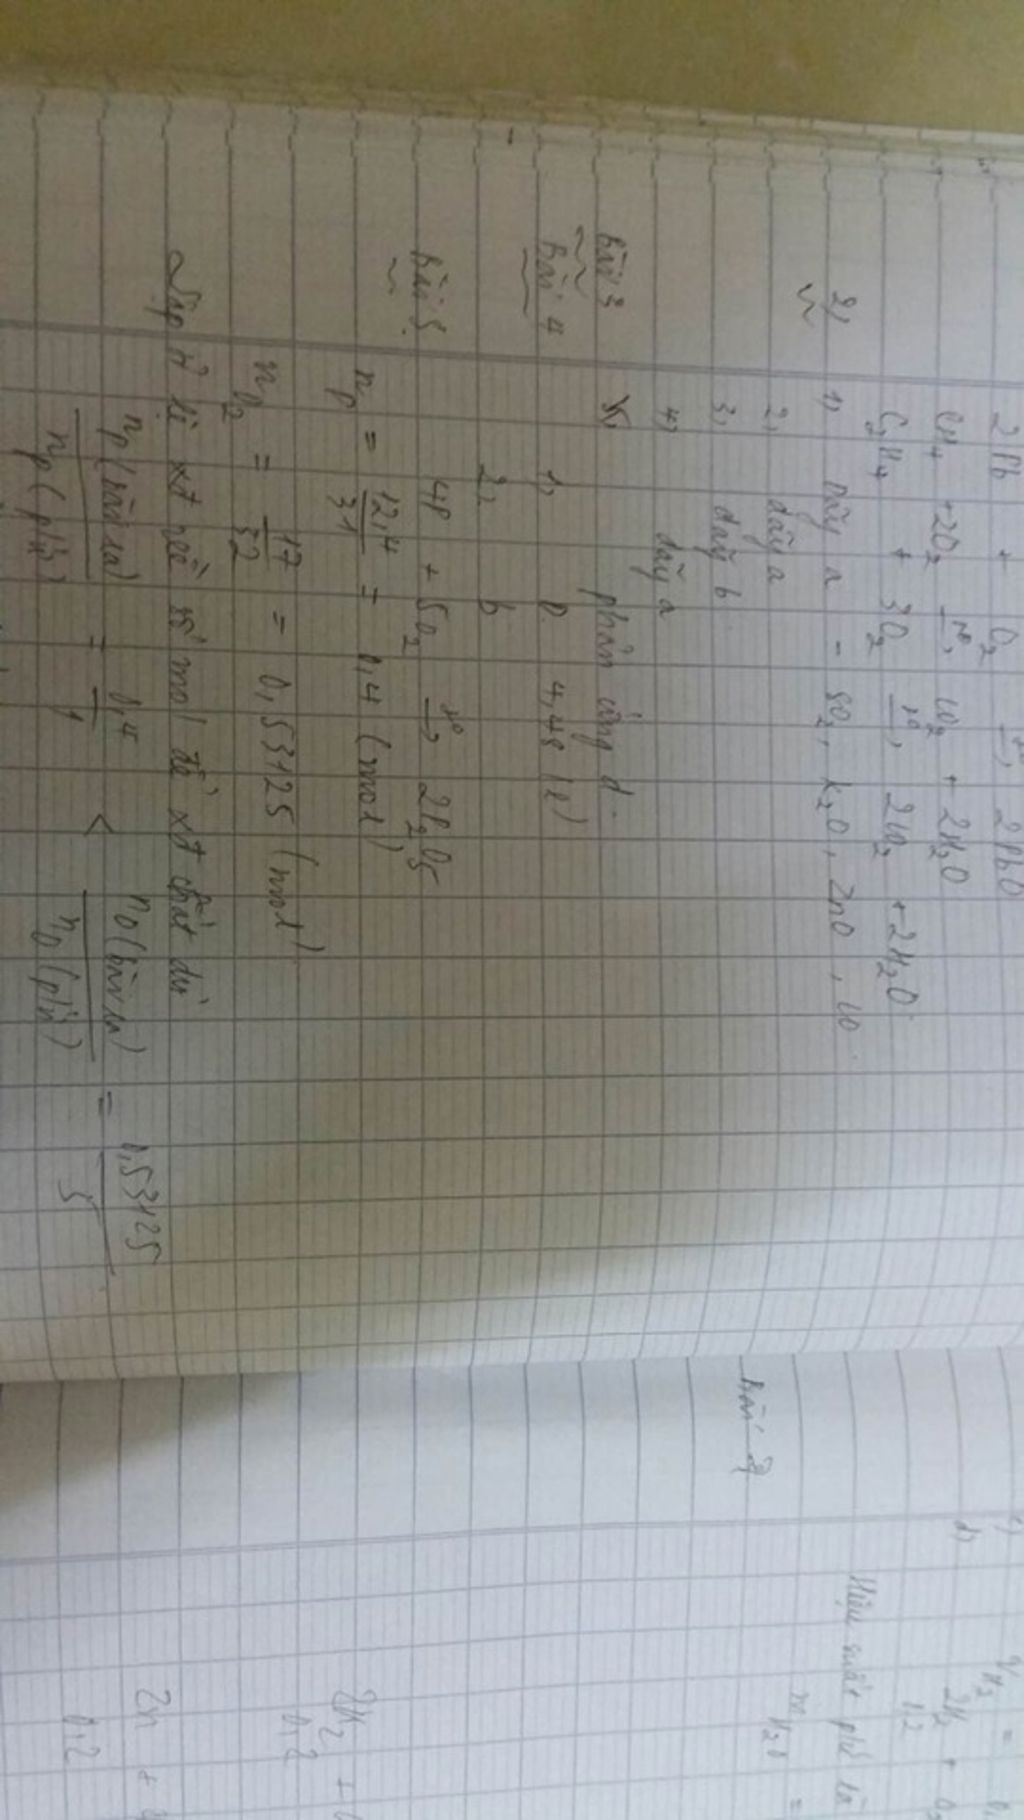 2Pb + O₂ t°→ 2PbO
CH₄ + 2O₂ t°→ CO₂ + 2H₂O
C₂H₄ + 3O₂ t°→ 2CO₂ + 2H₂O
2, 1, Dãy a - SO₂, K₂O, ZnO, CO
2, dãy a
3, dãy b
4, dãy a
Bài 3 phản ứng d.
Bài 4 1, D 4,48 (l)
2, b
Bài 5 4P + 5O₂ t°→ 2P₂O5
nP = 12,4/31 = 0,4 (mol)
nO₂ = 17/32 = 0,53125 (mol)
Lập tỉ lệ xét số mol để xét chất dư
nP (bài ra)/nP (pt) = 0,4/4 < nO (bài ra)/nO (pt) = 0,53125/5
d,
Hiệu suất
Bài 7
2H₂ +
0,2
Zn +
0,2